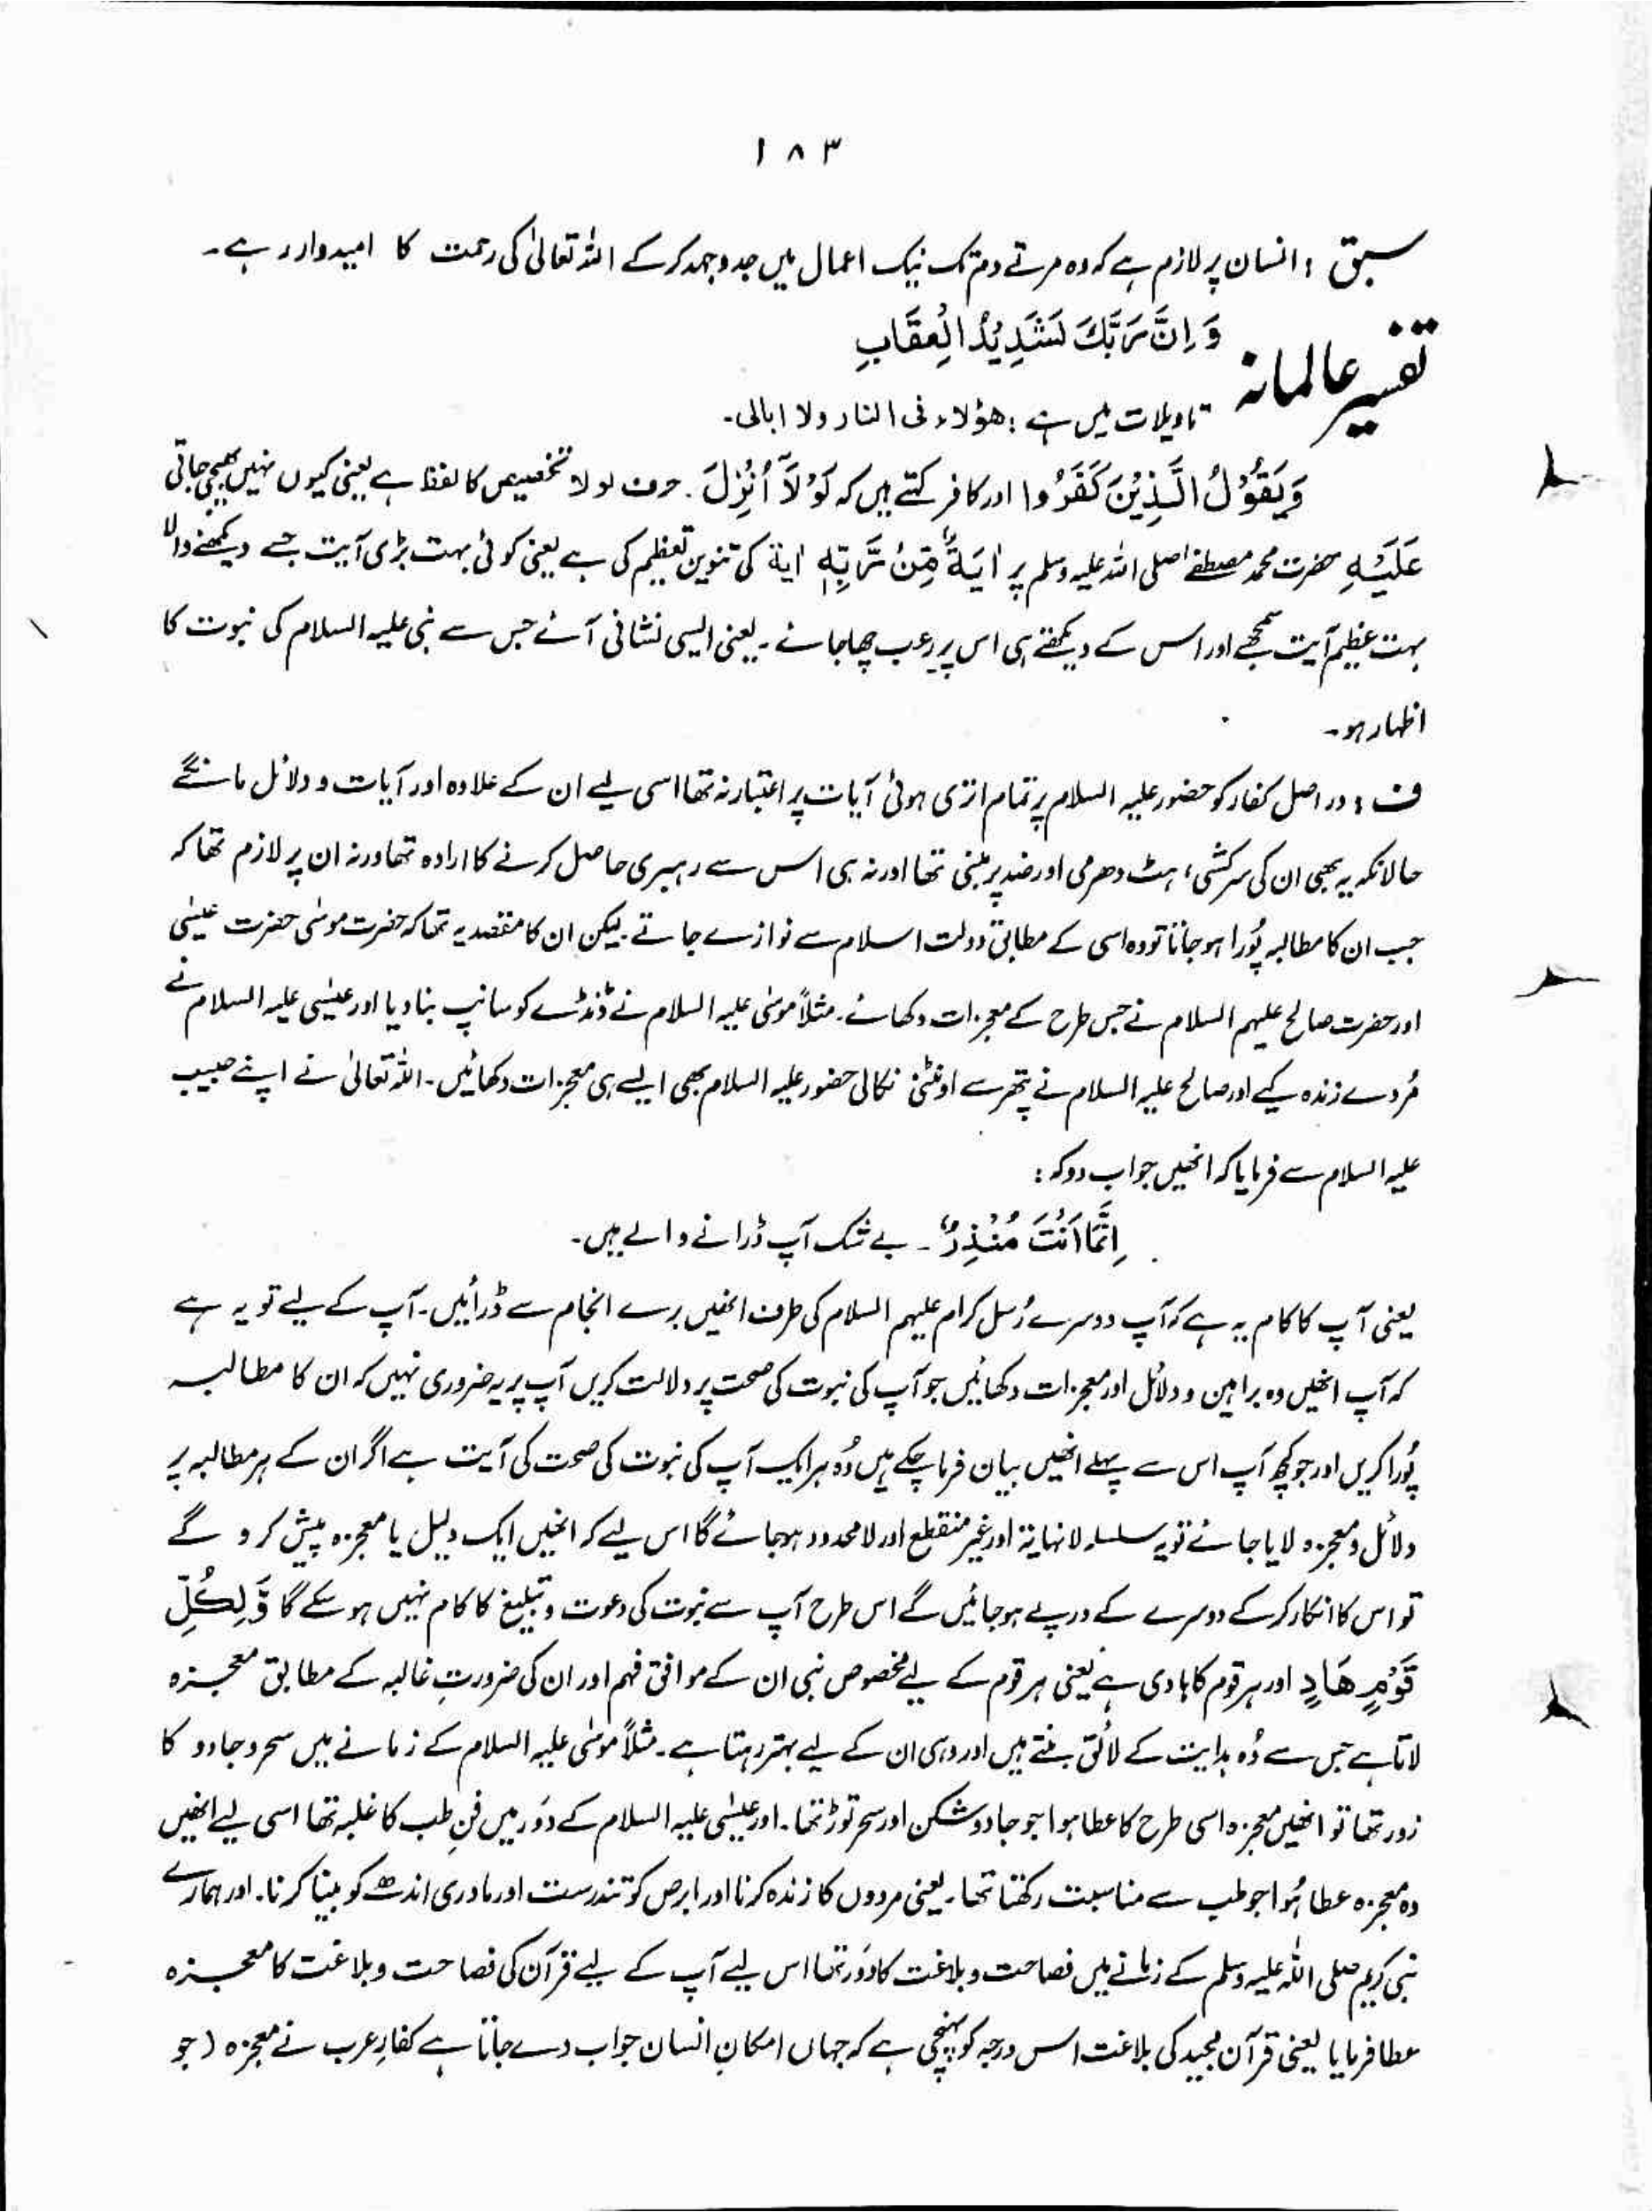 ١٨٣
سبق : انسان پر لازم ہے کہ وہ مرتے دم تک نیک اعمال میں جدوجہد کرکے اللہ تعالیٰ کی رحمت کا امیدوار رہے۔
وَ اِنَّ رَبَّكَ لَشَدِيْدُ الْعِقَابِ
تفسیر عالمانہ
تاویلات میں ہے : ھؤلاء فی النار ولا ابالی۔
وَيَقُوْلُ الَّذِيْنَ كَفَرُوا اور کافر کہتے ہیں کہ لَوْ لَآ اُنْزِلَ . حرف لولا تخصیص کا لفظ ہے یعنی کیوں نہیں بھیجی جاتی
عَلَيْهِ حضرت محمد مصطفےٰ صلی اللہ علیہ وسلم پر اٰيَةٌ مِّنْ رَّبِّهٖ اٰیة کی تنوین تعظیم کی ہے یعنی کوئی بہت بڑی آیت جسے دیکھنے والا
بہت عظیم آیت سمجھے اور اس کے دیکھتے ہی اس پر رعب چھا جائے ۔ یعنی ایسی نشانی آئے جس سے نبی علیہ السلام کی نبوت کا
اظہار ہو۔
ف : دراصل کفار کو حضور علیہ السلام پر تمام اتری ہوئی آیات پر اعتبار نہ تھا اسی لیے ان کے علاوہ اور آیات و دلائل مانگے
حالانکہ یہ بھی ان کی سرکشی، ہٹ دھرمی اور ضد پر مبنی تھا اور نہ ہی اس سے رہبری حاصل کرنے کا ارادہ تھا ورنہ ان پر لازم تھا کہ
جب ان کا مطالبہ پُورا ہو جاتا تو وہ اسی کے مطابق دولت اسلام سے نوازے جاتے ۔ لیکن ان کا مقصد یہ تھا کہ حضرت موسٰی حضرت عیسٰی
اور حضرت صالح علیہم السلام نے جس طرح کے معجزات دکھائے ۔ مثلاً موسٰی علیہ السلام نے ڈنڈے کو سانپ بنا دیا اور عیسٰی علیہ السلام نے
مُردے زندہ کیے اور صالح علیہ السلام نے پتھر سے اونٹنی نکالی حضور علیہ السلام بھی ایسے ہی معجزات دکھائیں ۔ اللہ تعالیٰ نے اپنے حبیب
علیہ السلام سے فرمایا کہ انھیں جواب دو کہ :
اِنَّمَا اَنْتَ مُنْذِرٌ ۔ بے شک آپ ڈرانے والے ہیں۔
یعنی آپ کا کام یہ ہے کہ آپ دوسرے رُسل کرام علیہم السلام کی طرف انھیں برے انجام سے ڈرائیں ۔ آپ کے لیے تو یہ ہے
کہ آپ انھیں وہ براہین و دلائل اور معجزات دکھائیں جو آپ کی نبوت کی صحت پر دلالت کریں آپ پر یہ ضروری نہیں کہ ان کا مطالبہ
پُورا کریں اور جو کچھ آپ اس سے پہلے انھیں بیان فرما چکے ہیں وُہ ہر ایک آپ کی نبوت کی صحت کی آیت ہے اگر ان کے ہر مطالبہ پر
دلائل و معجزہ لایا جائے تو یہ سلسلہ لانہایۃ اور غیر منقطع اور لامحدود ہو جائے گا اس لیے کہ انھیں ایک دلیل یا معجزہ پیش کرو گے
تو اس کا انکار کرکے دوسرے کے درپے ہو جائیں گے اس طرح آپ سے نبوت کی دعوت و تبلیغ کا کام نہیں ہو سکے گا وَّ لِكُلِّ
قَوْمٍ هَادٍ اور ہر قوم کا ہادی ہے یعنی ہر قوم کے لیے مخصوص نبی ان کے موافق فہم اور ان کی ضرورتِ غالبہ کے مطابق معجزہ
لاتا ہے جس سے وُہ ہدایت کے لائق بنتے ہیں اور وہی ان کے لیے بہتر رہتا ہے ۔ مثلاً موسٰی علیہ السلام کے زمانے میں سحر و جادو کا
زور تھا تو انھیں معجزہ اسی طرح کا عطا ہوا جو جادو شکن اور سحر توڑ تھا ۔ اور عیسٰی علیہ السلام کے دَور میں فنِ طب کا غلبہ تھا اسی لیے انھیں
وہ معجزہ عطا ہُوا جو طب سے مناسبت رکھتا تھا ۔ یعنی مردوں کا زندہ کرنا اور ابرص کو تندرست اور مادری اندھے کو بینا کرنا ۔ اور ہمارے
نبی کریم صلی اللہ علیہ وسلم کے زمانے میں فصاحت و بلاغت کا دَور تھا اس لیے آپ کے لیے قرآن کی فصاحت و بلاغت کا معجزہ
عطا فرمایا یعنی قرآن مجید کی بلاغت اس درجہ کو پہنچی ہے کہ جہاں امکانِ انسان جواب دے جاتا ہے کفارِ عرب نے معجزہ ( جو